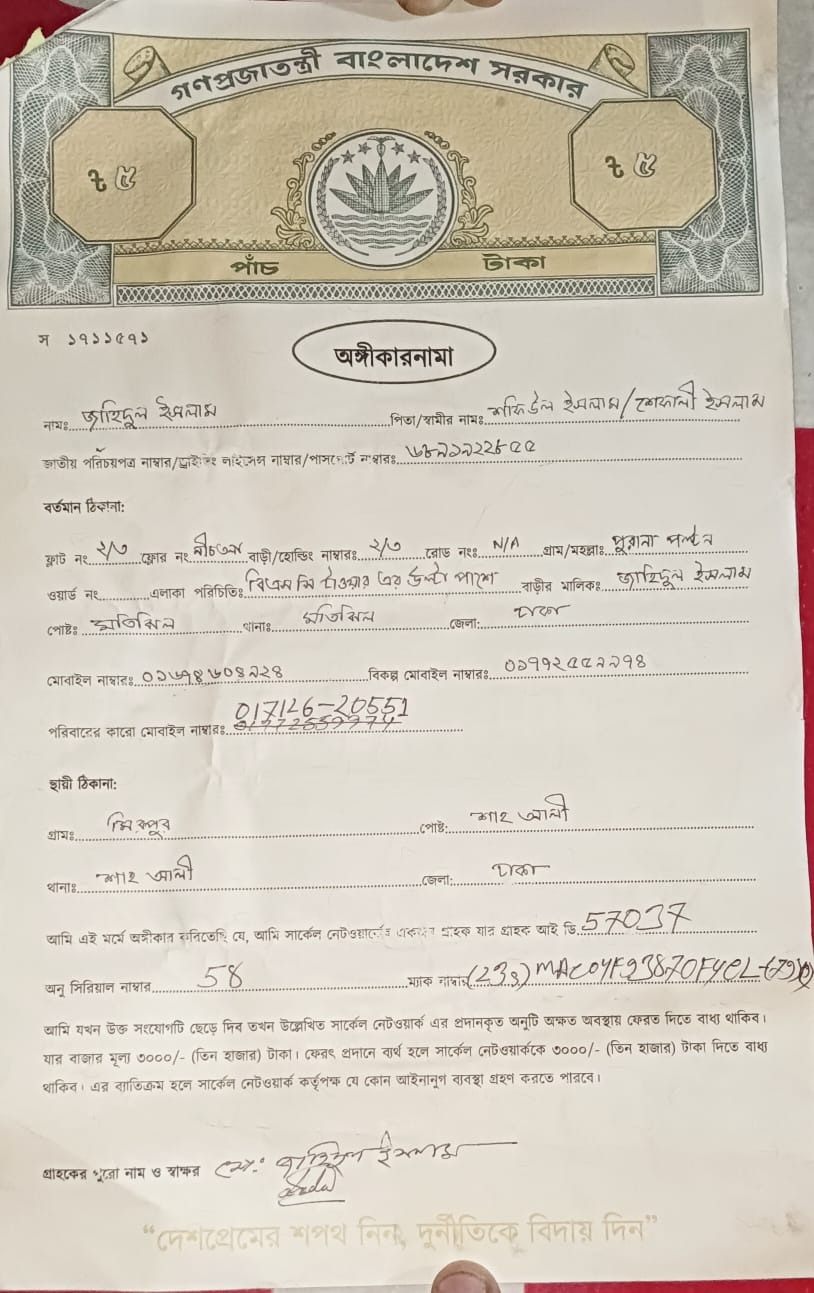 গণপ্রজাতন্ত্রী বাংলাদেশ সরকার
৳ ৫ ৳ ৫
পাঁচ টাকা
স ১৭১১৫৭১
অঙ্গীকারনামা
নামঃ জাহিদুল ইসলাম পিতা/স্বামীর নামঃ শফিউল ইসলাম/শেফালী ইসলাম
জাতীয় পরিচয়পত্র নাম্বার/ড্রাইভিং লাইসেন্স নাম্বার/পাসপোর্ট নম্বারঃ
বর্তমান ঠিকানা:
ফ্লাট নং ২/৩ ফ্লোর নং নীচতলা বাড়ী/হোল্ডিং নাম্বারঃ ২/৩ রোড নংঃ N/A গ্রাম/মহল্লাঃ পুরানা পল্টন
ওয়ার্ড নং এলাকা পরিচিতিঃ টাওয়ার এর উল্টা পাশে বাড়ীর মালিকঃ জাহিদুল ইসলাম
পোষ্টঃ মতিঝিল থানাঃ মতিঝিল জেলা: ঢাকা
মোবাইল নাম্বারঃ বিকল্প মোবাইল নাম্বারঃ
পরিবারের কারো মোবাইল নাম্বারঃ 017126-20551
স্থায়ী ঠিকানা:
গ্রামঃ মিরপুর পোষ্ট: শাহ আলী
থানাঃ শাহ আলী জেলা: ঢাকা
আমি এই মর্মে অঙ্গীকার করিতেছি যে, আমি সার্কেল নেটওয়ার্কের একজন গ্রাহক যার গ্রাহক আই ডি. 57037
অনু সিরিয়াল নাম্বার 58 ম্যাক নাম্বার
আমি যখন উক্ত সংযোগটি ছেড়ে দিব তখন উল্লেখিত সার্কেল নেটওয়ার্ক এর প্রদানকৃত অনুটি অক্ষত অবস্থায় ফেরত দিতে বাধ্য থাকিব।
যার বাজার মূল্য ৩০০০/- (তিন হাজার) টাকা। ফেরৎ প্রদানে ব্যর্থ হলে সার্কেল নেটওয়ার্ককে ৩০০০/- (তিন হাজার) টাকা দিতে বাধ্য
থাকিব। এর ব্যতিক্রম হলে সার্কেল নেটওয়ার্ক কর্তৃপক্ষ যে কোন আইনানুগ ব্যবস্থা গ্রহণ করতে পারবে।
গ্রাহকের পুরো নাম ও স্বাক্ষর মো: জাহিদুল ইসলাম
“দেশপ্রেমের শপথ নিন, দুর্নীতিকে বিদায় দিন”